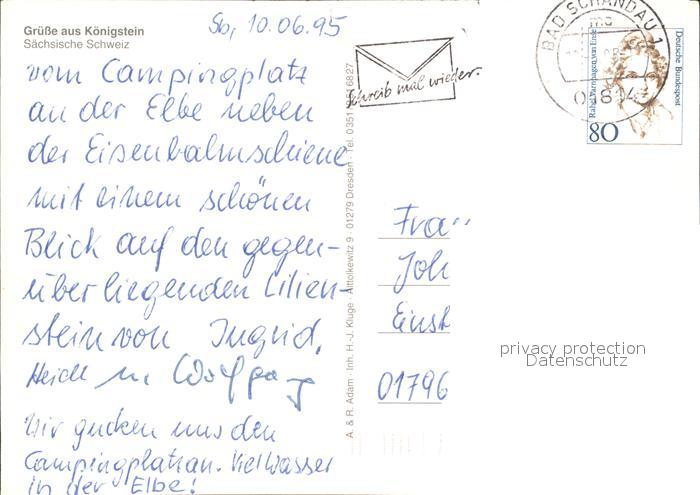 Grüße aus Königstein
Sächsische Schweiz
So, 10.06.95
vom Campingplatz
an der Elbe neben
der Eisenbahnschiene
mit einem schönen
Blick auf den gegen-
überliegenden Lilien-
stein von Ingrid,
Heidi Wolfgang
Wir gucken uns den
Campingplatz an. Viel Wasser
in der Elbe!
Schreib mal wieder.
BAD SCHANDAU 1
01814
Deutsche Bundespost
Rahel Varnhagen von Ense
80
A. & R. Adam · Inh. H.-J. Kluge · 9 · 01279 Dresden · Tel. 0351
Frau
Joh
Einst
01796
privacy protection
Datenschutz